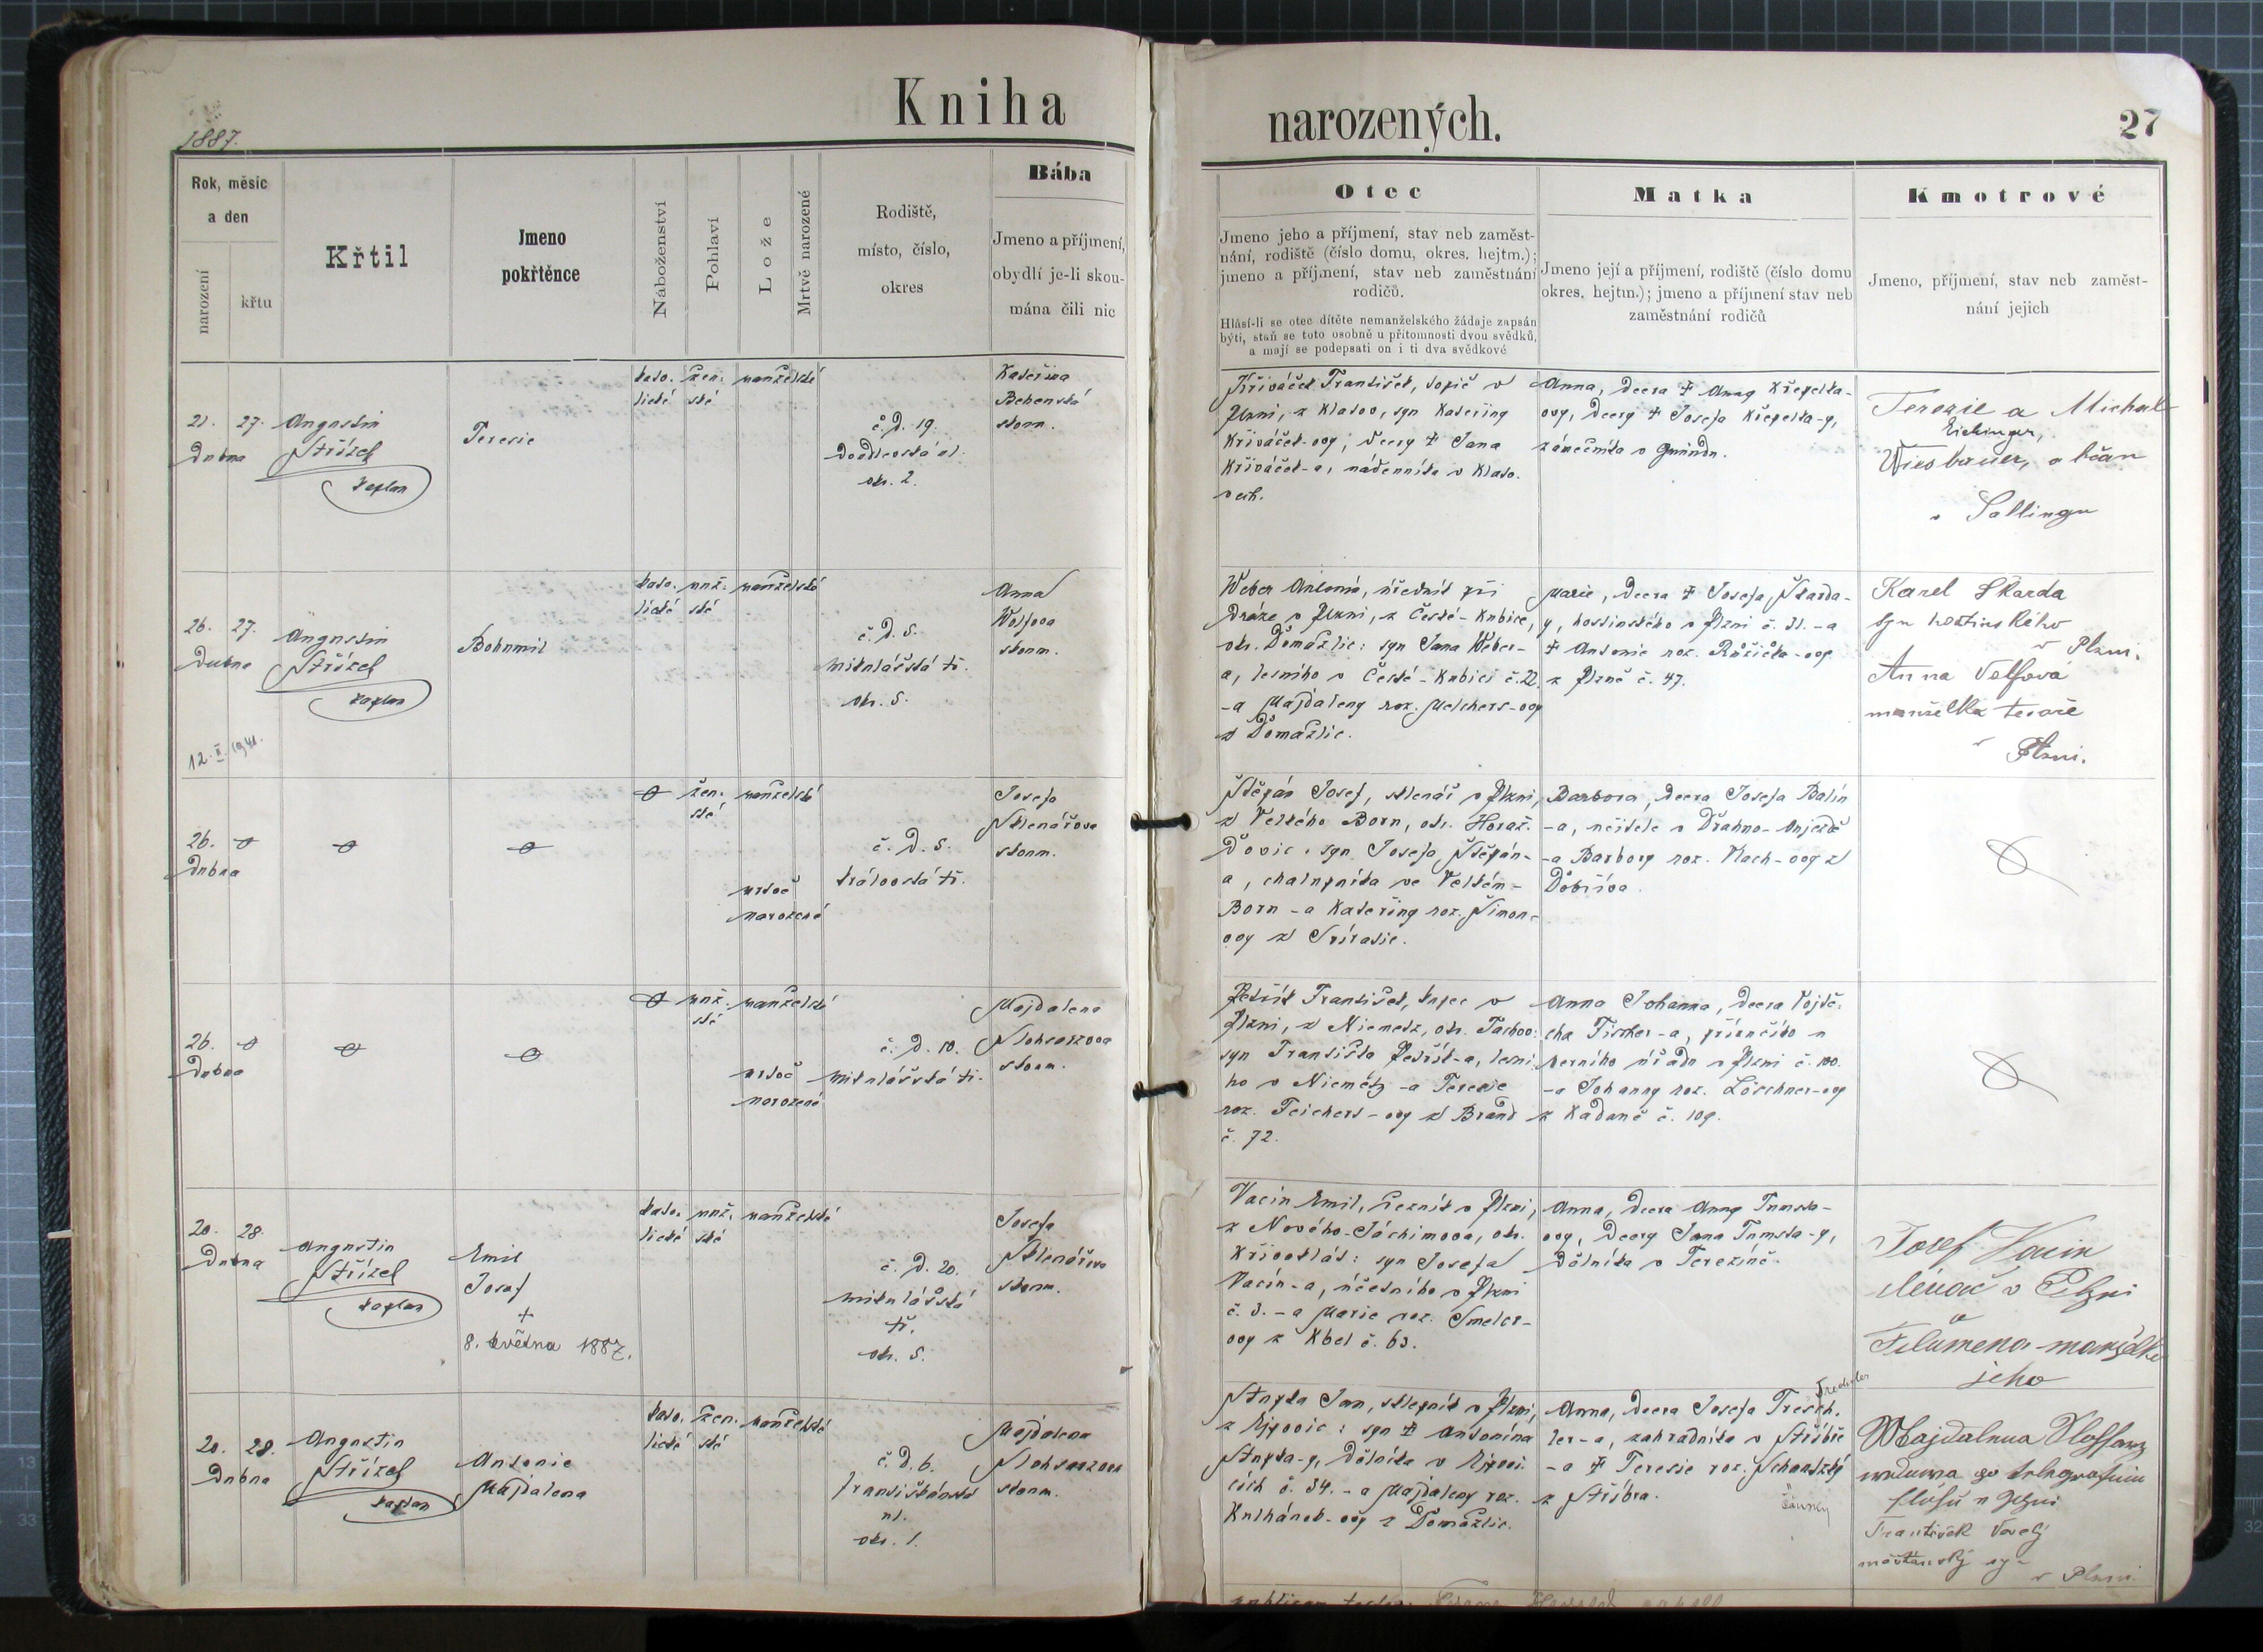 Kniha
narozených.
27
1887.
Rok, měsíc
a den
narození
křtu
Křtil
Jmeno
pokřtěnce
Náboženství
Pohlaví
Lože
Mrtvě narozené
Rodiště,
místo, číslo,
okres
Bába
Jmeno a příjmení,
obydlí je-li skou-
mána čili nic
Otec
Jmeno jeho a příjmení, stav neb zaměst-
nání, rodiště (číslo domu, okres. hejtm.);
jmeno a příjmení, stav neb zaměstnání
rodičů.
Hlásí-li se otec dítěte nemanželského žádaje zapsán
býti, staň se toto osobně u přítomnosti dvou svědků,
a mají se podepsati on i ti dva svědkové
Matka
Jmeno její a příjmení, rodiště (číslo domu
okres. hejtm.); jmeno a příjmení stav neb
zaměstnání rodičů
Kmotrové
Jmeno, příjmení, stav neb zaměst-
nání jejich
21. 27.
Dubna
Augustin
Střízek
kaplan
Teresie
kato. žen. manželské
lické ské
č. D. 19.
Doudlevská ul.
okr. 2.
Kateřina
skoum.
Křiváček František, topič v
Plzni, z Klatov, syn Kateřiny
Křiváček-ovy, dcery † Jana
Křiváček-a, nádenníka v Klato-
vech.
Anna, dcera † Anny Křepelka-
ovy, dcery † Josefa Křepelka-y,
zámečníka v Gmündu.
Terezie a Michal
Eichinger,
Wiesbauer, občan
v Sallingu
26. 27.
Dubna
12. II. 1941.
Augustin
Střízek
kaplan
Bohumil
kato. muž. manželské
lické ské
č. D. 5.
Mikulášská tř.
okr. 5.
Anna
Wolfova
skoum.
Weber Antonín, úředník při
Dráze v Plzni, z České-Kubice,
okr. Domažlic: syn Jana Weber-
a, lesního v České-Kubici č. 22.
-a Majdaleny roz. Melchers-ovy
z Domažlic.
Marie, dcera † Josefa Škarda-
y, hostinského v Plzni č. 31. -a
† Antonie roz. Růžička-ovy
z Plzně č. 47.
Karel Skarda
syn hostinského
v Plzni.
Anna Volfová
manželka tesaře
v Plzni.
26.
Dubna
žen. manželské
ské
mrtvě
narozené
č. D. 5.
královská tř.
Josefa
Sklenářova
skoum.
Štěpán Josef, sklenář v Plzni,
z Velkého Boru, okr. Horaž-
ďovic: syn Josefa Štěpán-
a, chalupníka ve Velkém-
Boru -a Kateřiny roz. Šimon-
ovy z
Barbora, dcera Josefa Balín
-a, učitele v Drahno-Anjezdě
-a Barbory roz. Vlach-ovy z
Dobříva.
26.
Dubna
muž. manželské
ské
mrtvě
narozené
č. D. 10.
Mikulášská tř.
Majdalena
skoum.
Petřík František, kupec v
Plzni, z Niemetz, okr. Tachov:
syn Františka Petřík-a, lesní-
ho v Niemetz -a Teresie
roz. Teichert-ovy z Brand
č. 72.
Anna Johanna, dcera Vojtě-
cha Fischer-a, příručího u
berního úřadu v Plzni č. 100.
-a Johanny roz. Löschner-ovy
z Kadaně č. 109.
20. 28.
Dubna
Augustin
Střízek
kaplan
Emil
Josef
+
8. května 1887.
kato. muž. manželské
lické ské
č. D. 20.
Mikulášská
tř.
okr. 5.
Josefa
Sklenářova
skoum.
Vacín Emil, řezník v Plzni,
z Nového-Jáchimova, okr.
Křivoklát: syn Josefa
Vacín-a, účetního v Plzni
č. 3. -a Marie roz. Smeler-
ovy z Kbel č. 63.
Anna, dcera Anny Tumska-
ovy, dcery Jana Tumska-y,
dělníka v Terezíně.
Josef Vacin
v Plzni
a
Filumena manželka
jeho
20. 28.
Dubna
Augustin
Střízek
kaplan
Antonie
Majdalena
kato. žen. manželské
lické ské
č. D. 6.
františkánská
ul.
okr. 1.
Majdalena
skoum.
Stupka Jan, sklepník v Plzni,
z Ejpovic: syn † Antonína
Stupka-y, dělníka v Ejpovi-
cích č. 34. -a Majdaleny roz.
Kulhánek-ovy z Domažlic.
Anna, dcera Josefa Tresch-
ler-a, zahradníka v Stříbře
-a † Teresie roz.
z Stříbra.
František Veselý
měšťanský syn
v Plzni.